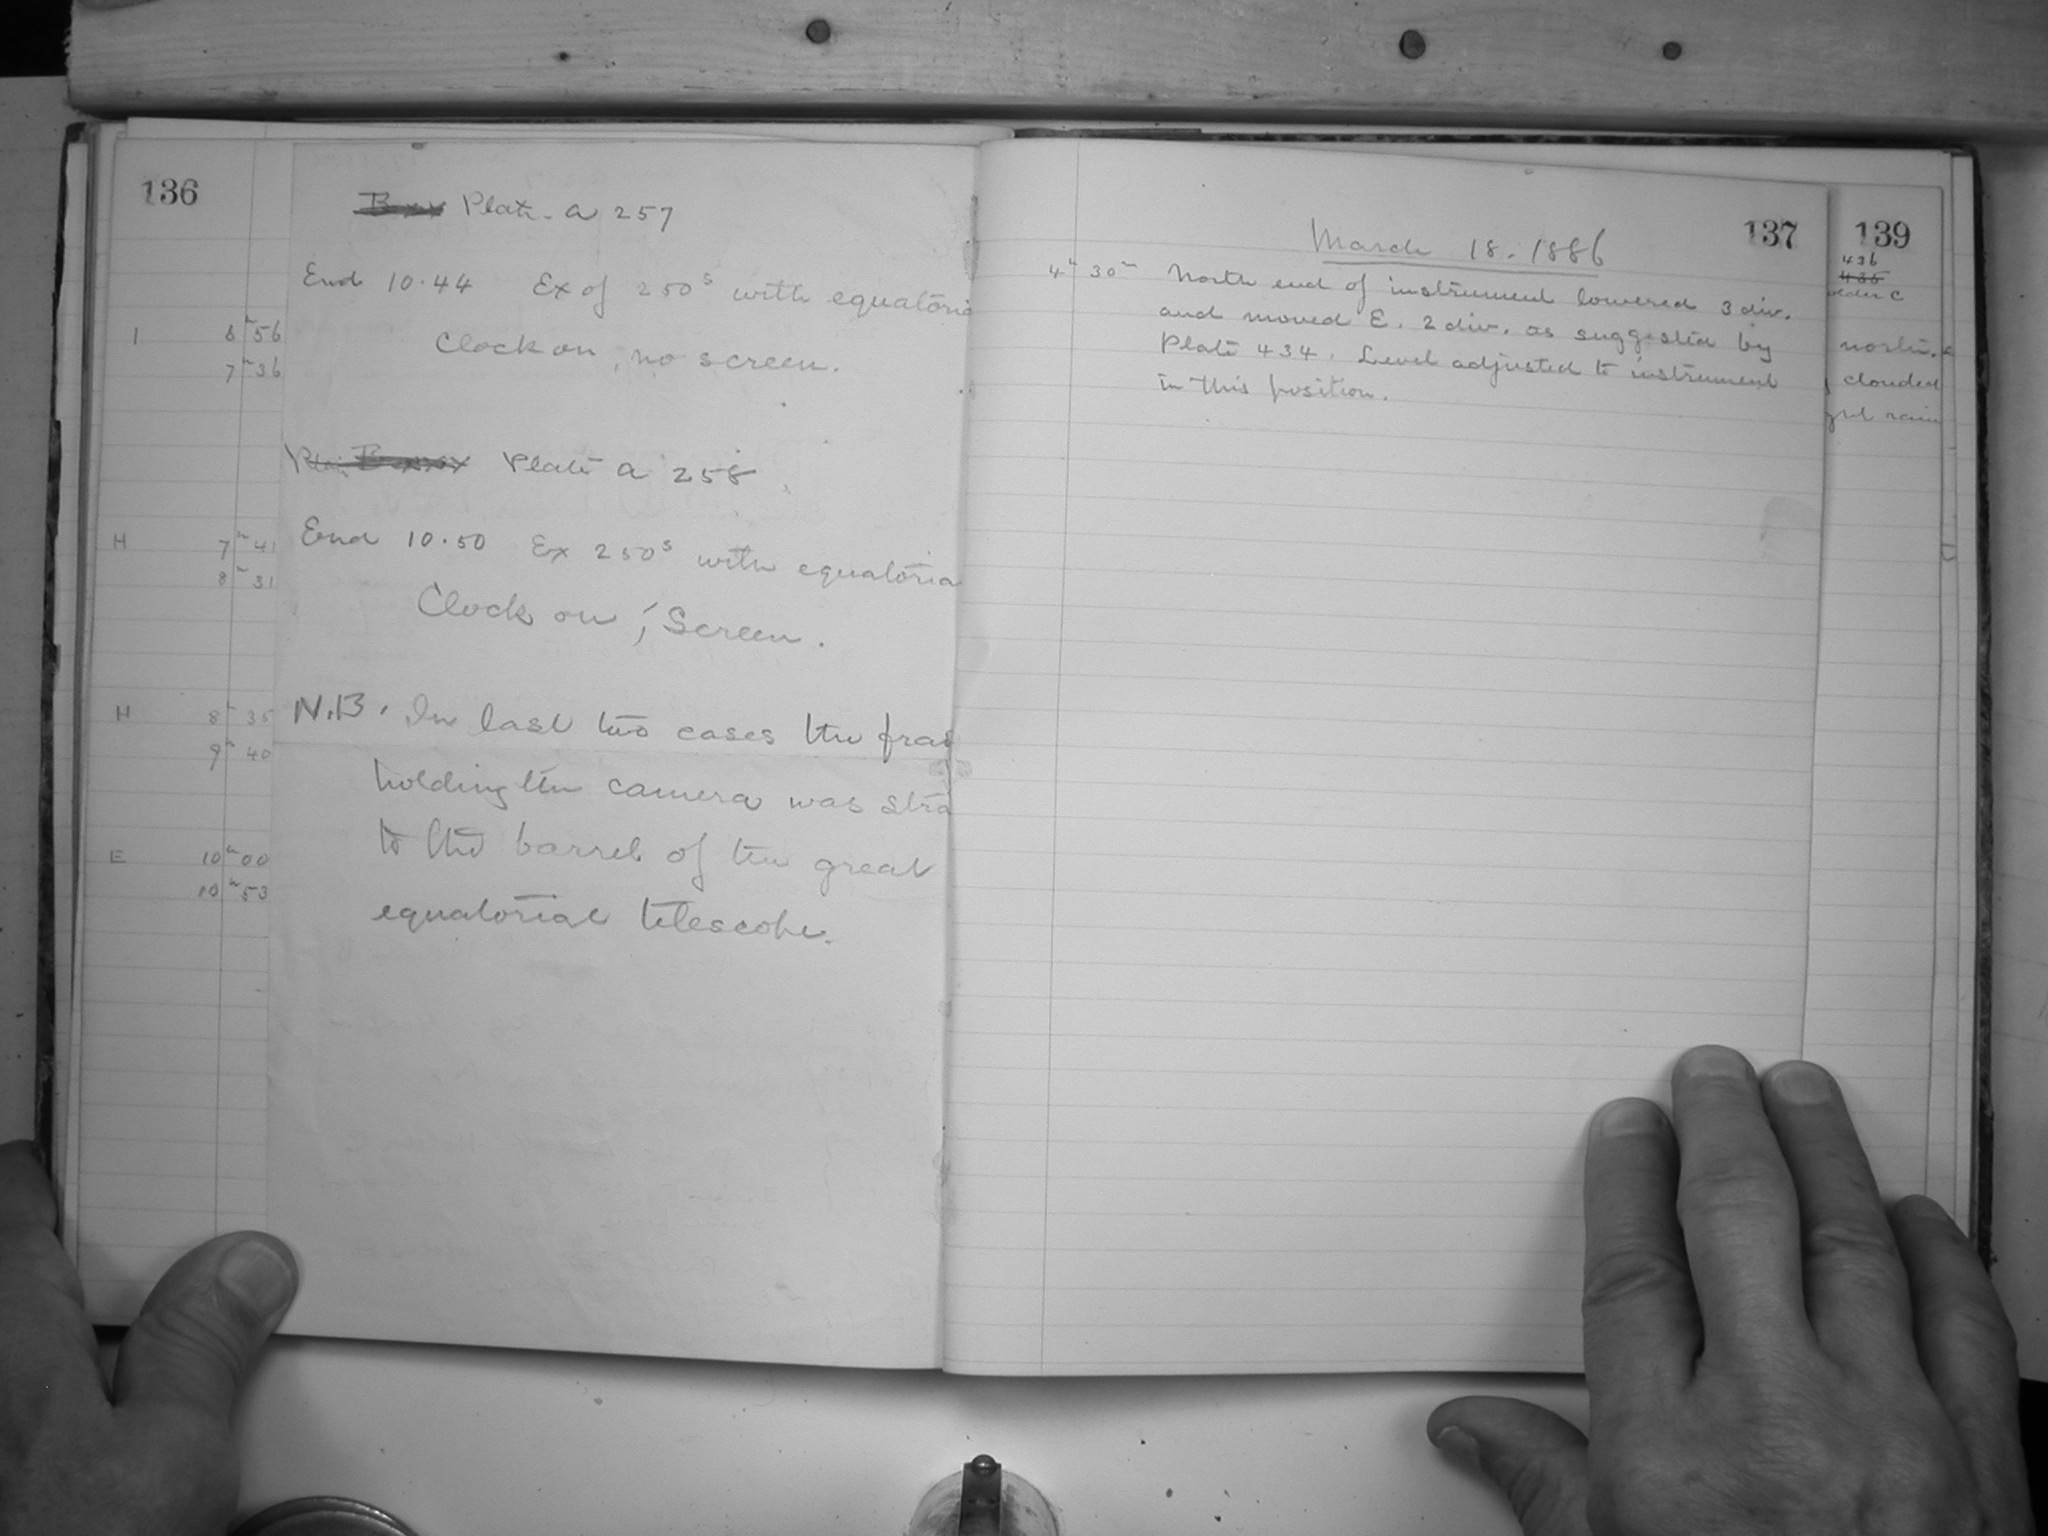 136
Plate a 257
End 10.44 Ex of 250s with equatoria
Clock on, no screen.
Plate a 258
End 10.50 Ex 250s with equatoria
Clock on; Screen.
N.B. In last two cases the fra
holding the camera was stra
to the barrel of the great
equatorial telescope.
I 6h 56
7h 36
H 7h 41
8h 31
H 8h 35
9h 40
E 10h 00
10h 53
137
March 18. 1886
4h 30m North end of instrument lowered 3 div.
and moved E. 2 div. as suggested by
Plate 434. Level adjusted to instrument
in this position.
139
436
435
older C
north.
clouded
rain